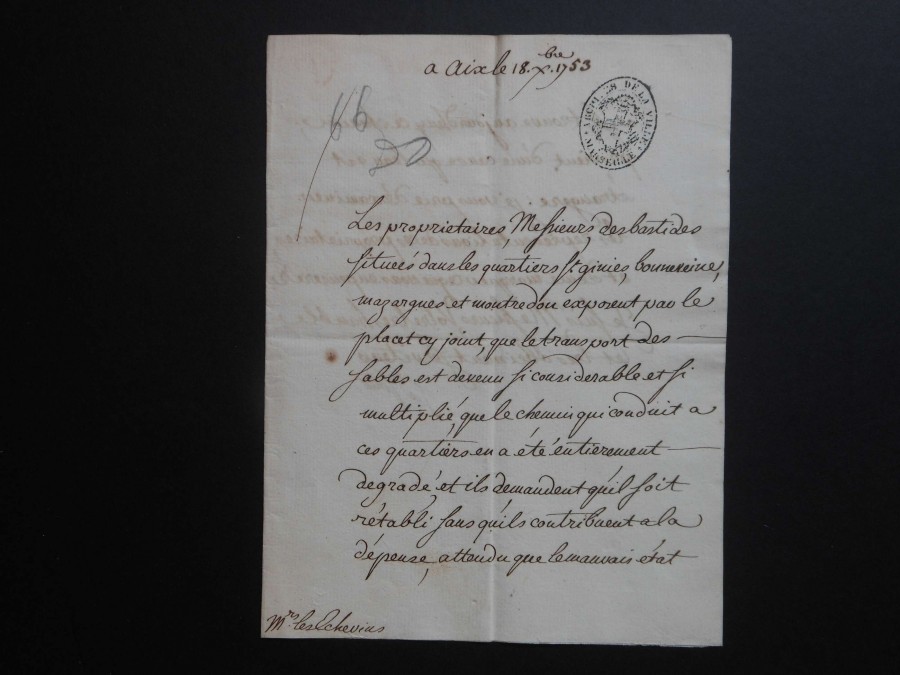 a Aix le 18. Xbre 1753
ARCHIVES DE LA VILLE MARSEILLE
66
Les proprietaires, Messieurs, des bastides
situeés dans les quartiers St. giniés, bonneveine,
mazargues et montredon exposent par le
placet cy joint, que le transport des
sables est devenu si considerable et si
multiplié, que le chemin qui conduit a
ces quartiers en a été entierement
degradé et ils demandent qu'il soit
rétabli sans qu'ils contribuent a la
dépense, attendu que le mauvais état
Mrs. les Echevins